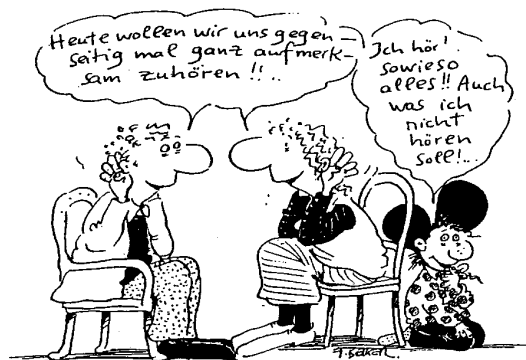 Heute wollen wir uns gegen-
seitig mal ganz aufmerk-
sam zuhören !!..
Ich hör'
sowieso
alles!! Auch
was ich
nicht
hören
soll!...